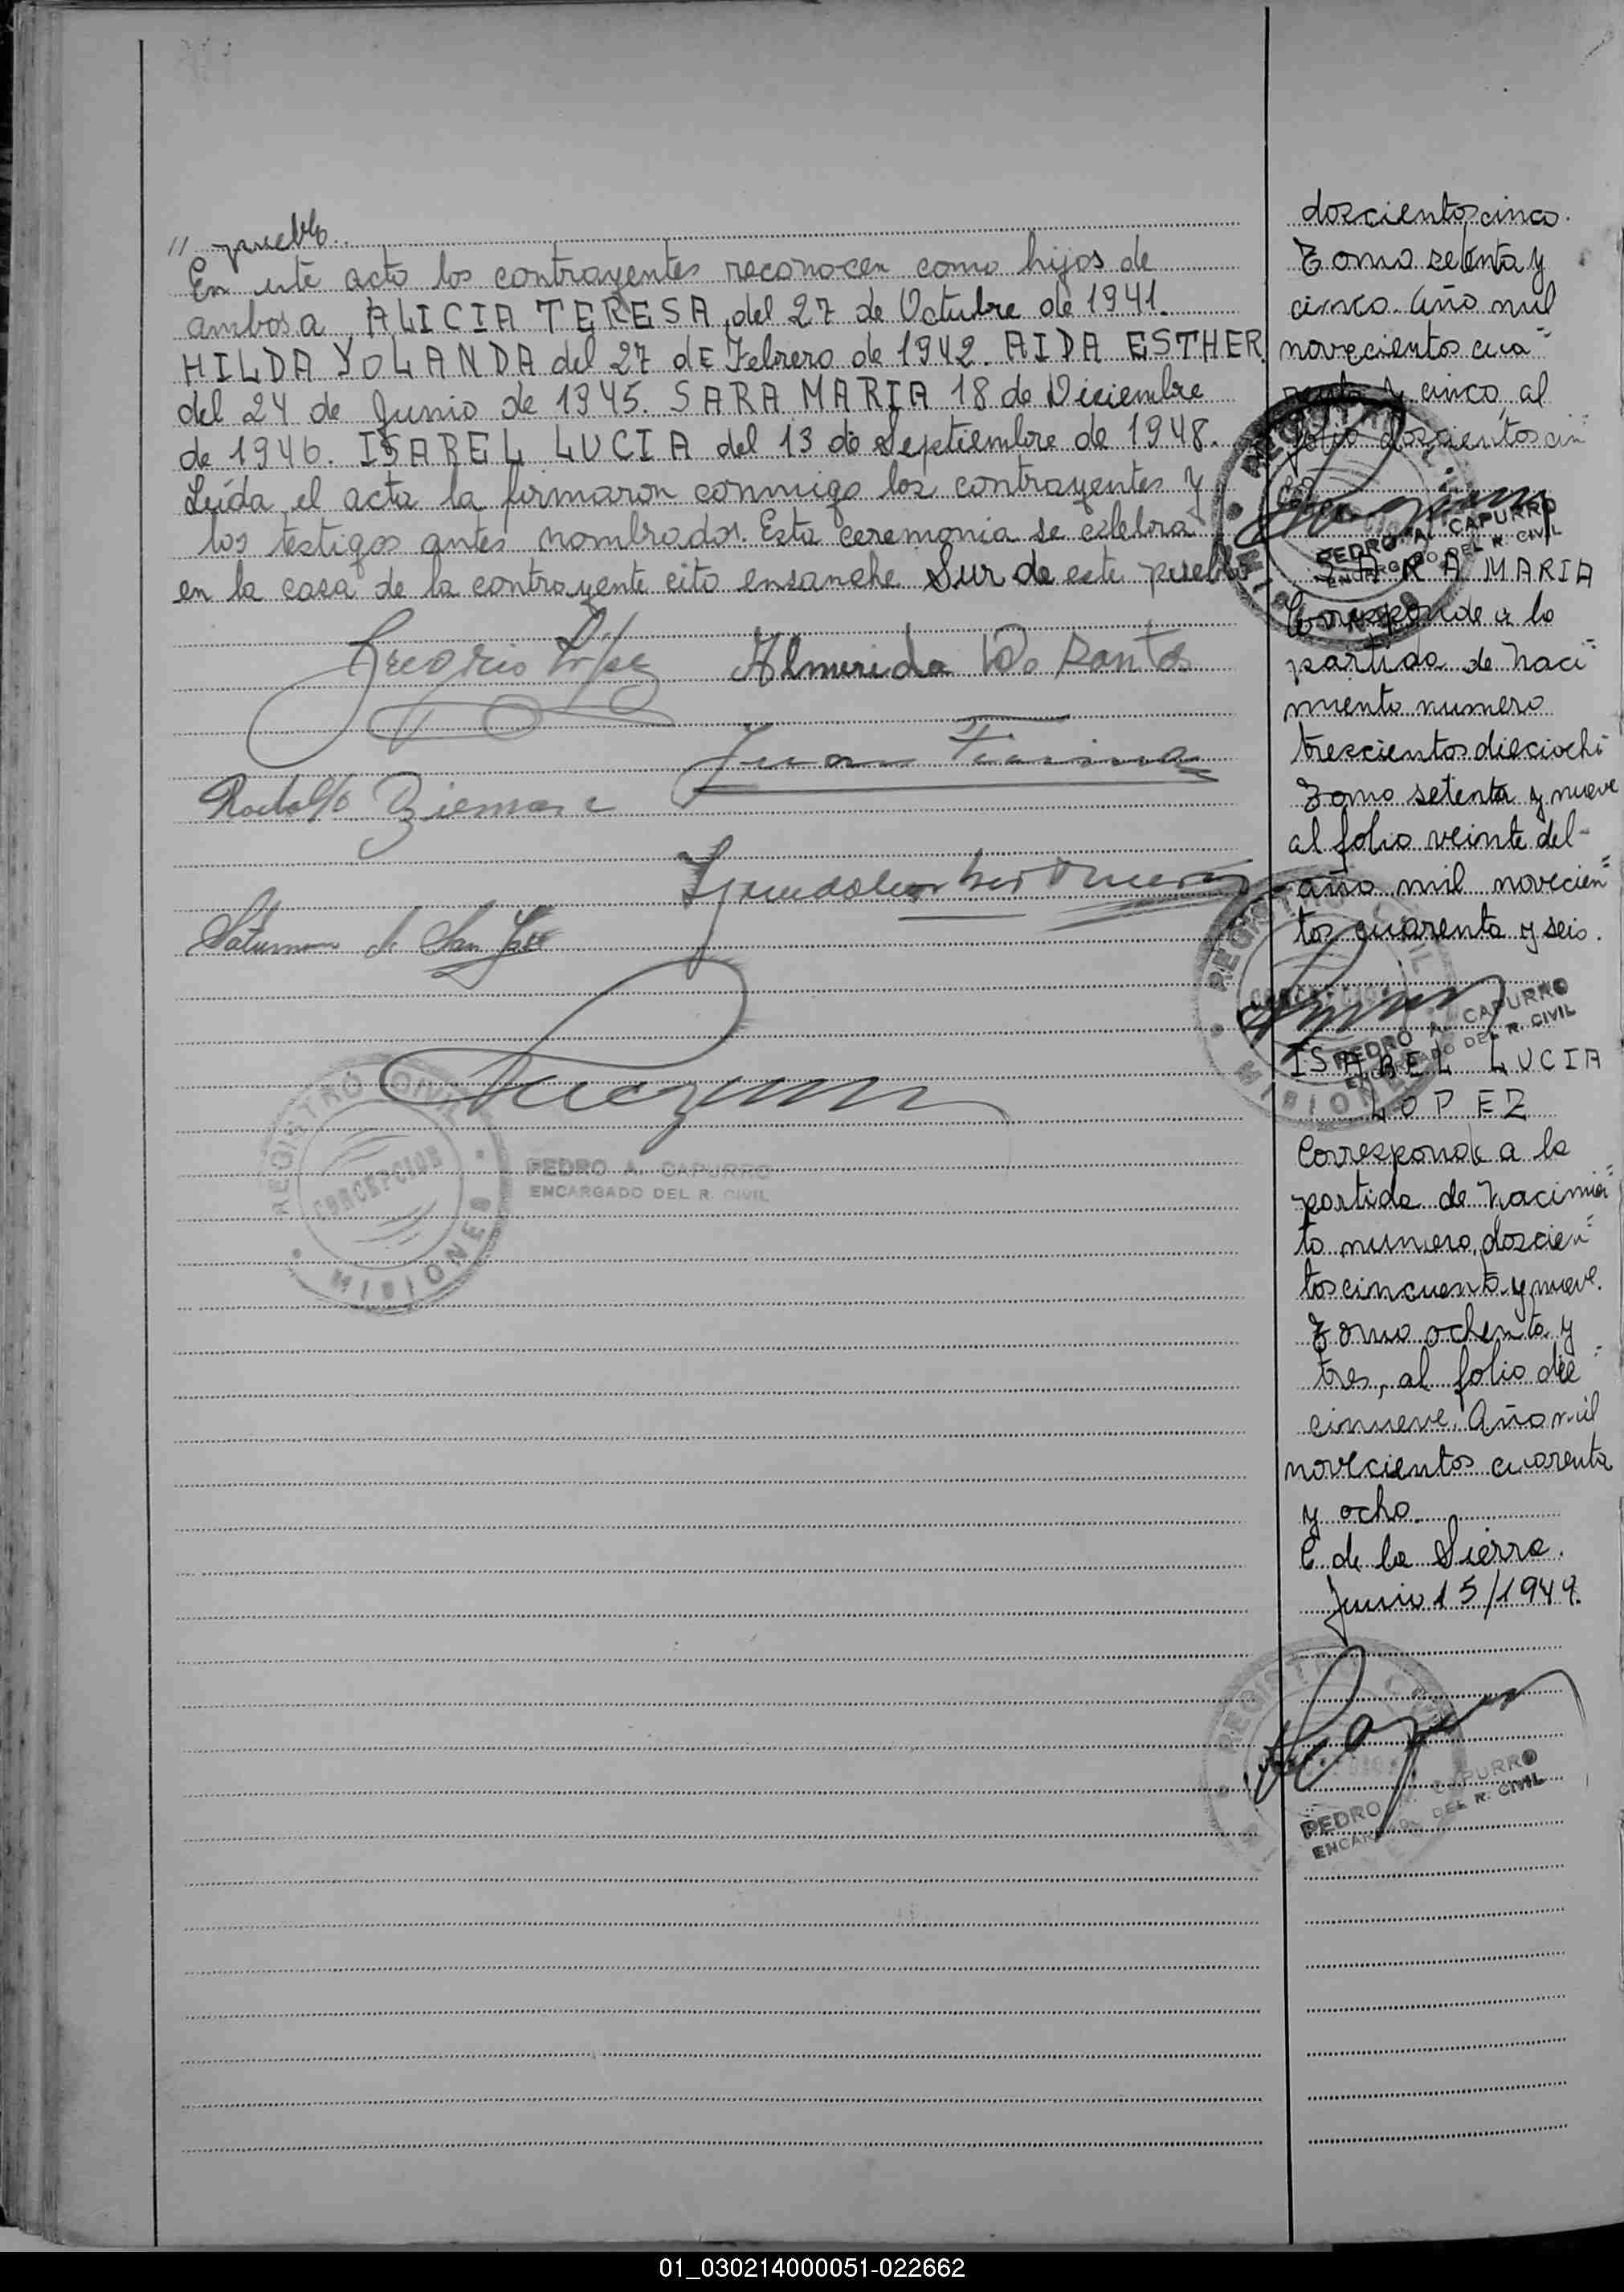 // pueblo.
En este acto los contrayentes reconocen como hijos de
ambos a ALICIA TERESA, del 27 de Octubre de 1941.
HILDA YOLANDA del 27 dE Febrero de 1942. AIDA ESTHER.
del 24 de Junio de 1945. SARA MARIA 18 de Diciembre
de 1946. ISABEL LUCIA del 13 de Septiembre de 1948.
Leída el acta la firmaron conmigo los contrayentes y
los testigos antes nombrados. Esta ceremonia se celebra
en la casa de la contrayente cito ensanche Sur de este pueblo
Gregorio López Almerida Do Santos
Juan
Rodolfo
Saturnino de San José
REGISTRO CIVIL
CONCEPCION
MISIONES
PEDRO A. CAPURRO
ENCARGADO DEL R. CIVIL
doscientos cinco.
Tomo setenta y
cinco. Año mil
novecientos cua=
renta y cinco, al
folio doscientos cin
co
REGISTRO CIVIL
MISIONES
PEDRO A. CAPURRO
ENCARGADO DEL R. CIVIL
SARA MARIA
Corresponde a la
partida de naci=
miento numero
trescientos dieciocho
Tomo setenta y nueve
al folio veinte del-
año mil novecien=
tos cuarenta y seis.
REGISTRO CIVIL
MISIONES
PEDRO A. CAPURRO
ENCARGADO DEL R. CIVIL
ISABEL LUCIA
LOPEZ
Corresponde a la
partida de nacimien=
to numero, doscien=
tos cincuenta y nueve.
Tomo ochenta y
tres, al folio die=
cinueve. Año mil
novecientos cuarenta
y ocho.
C. de la Sierra.
Junio 15/1949.
REGISTRO
PEDRO A. CAPURRO
ENCARGADO DEL R. CIVIL
01_030214000051-022662